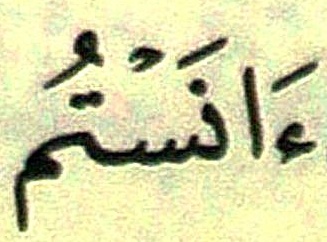 ءَانَسْتُم